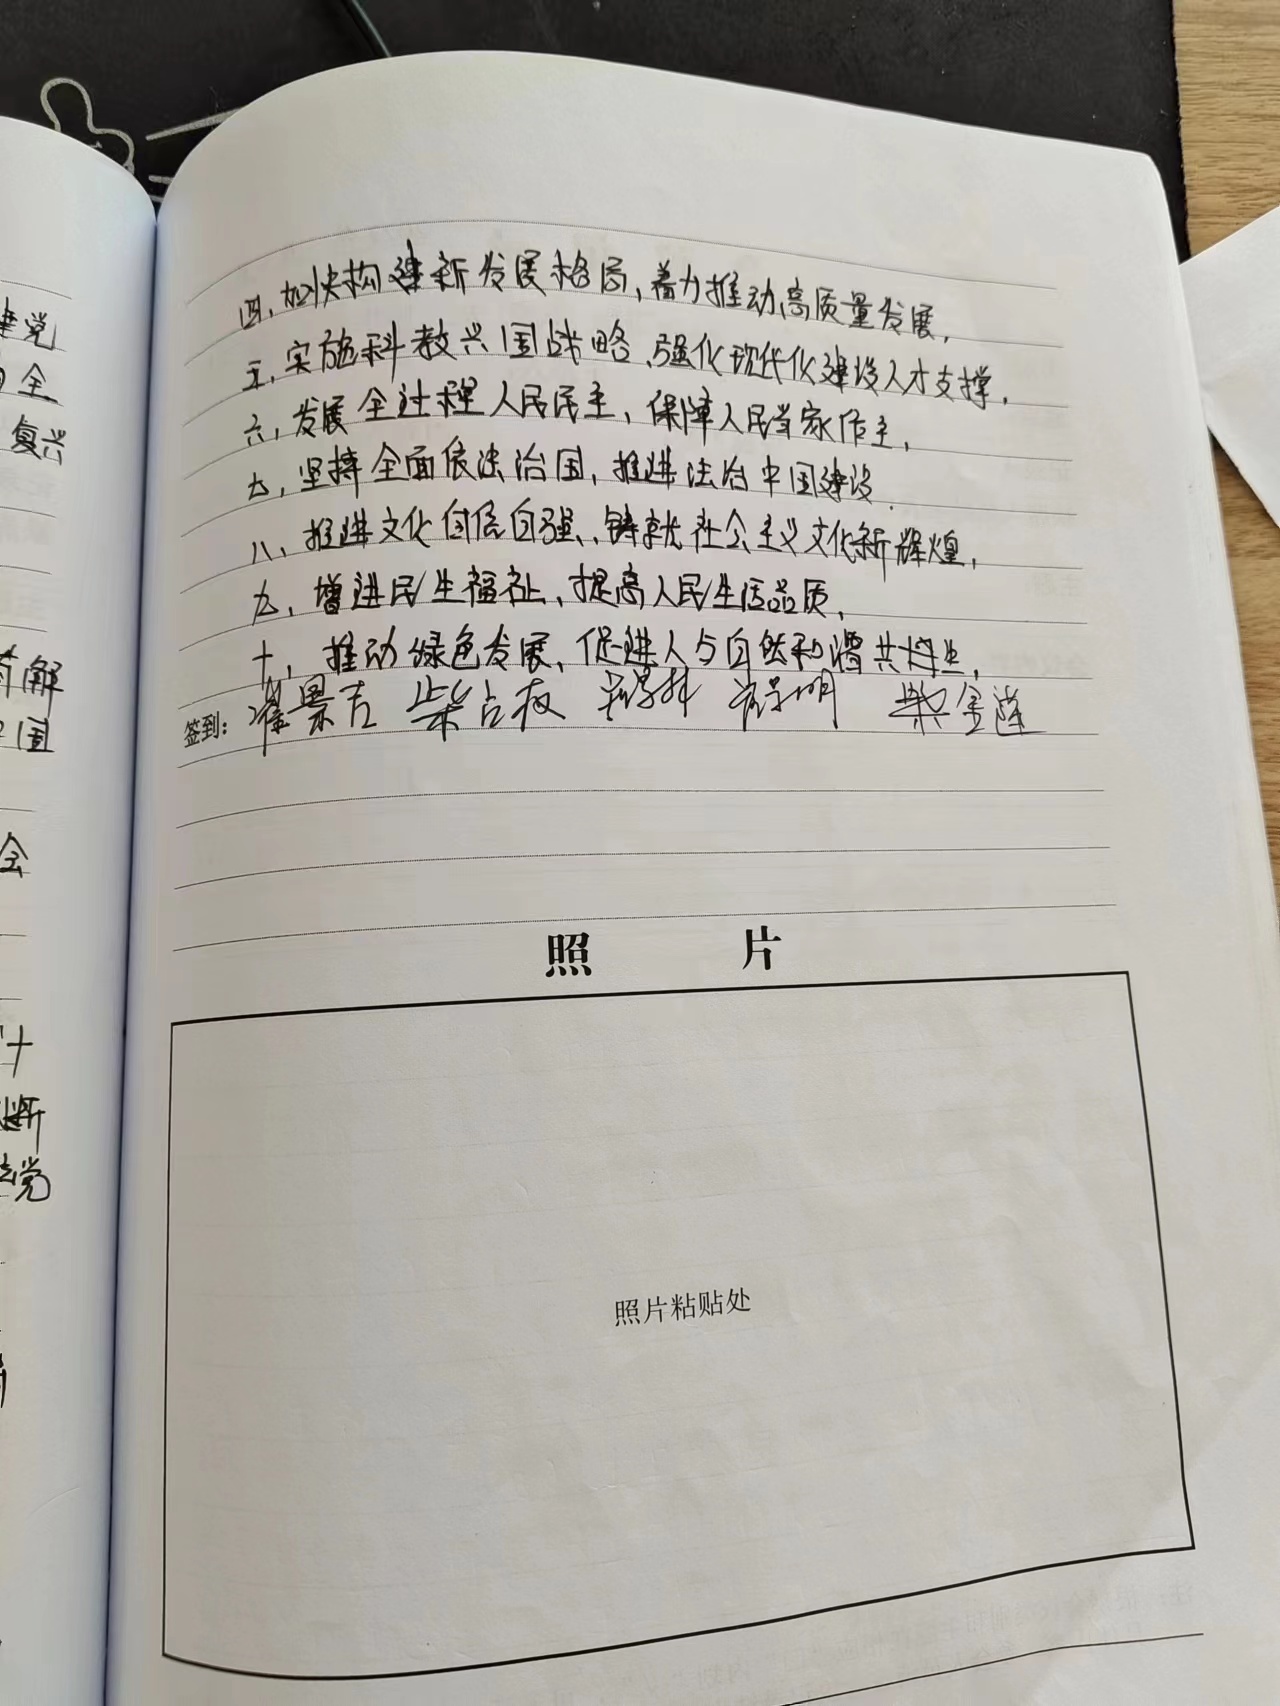 四、加快构建新发展格局，着力推动高质量发展，
五、实施科教兴国战略、强化现代化建设人才支撑，
六，发展全过程人民民主，保障人民当家作主，
七，坚持全面依法治国，推进法治中国建设.
八、推进文化自信自强、铸就社会主义文化新辉煌，
九，增进民生福祉、提高人民生活品质，
十，推动绿色发展、促进人与自然和谐共生，
签到：景吉 柴占 金莲
照 片
照片粘贴处
党
全
复兴
解
国
会
十
断
党